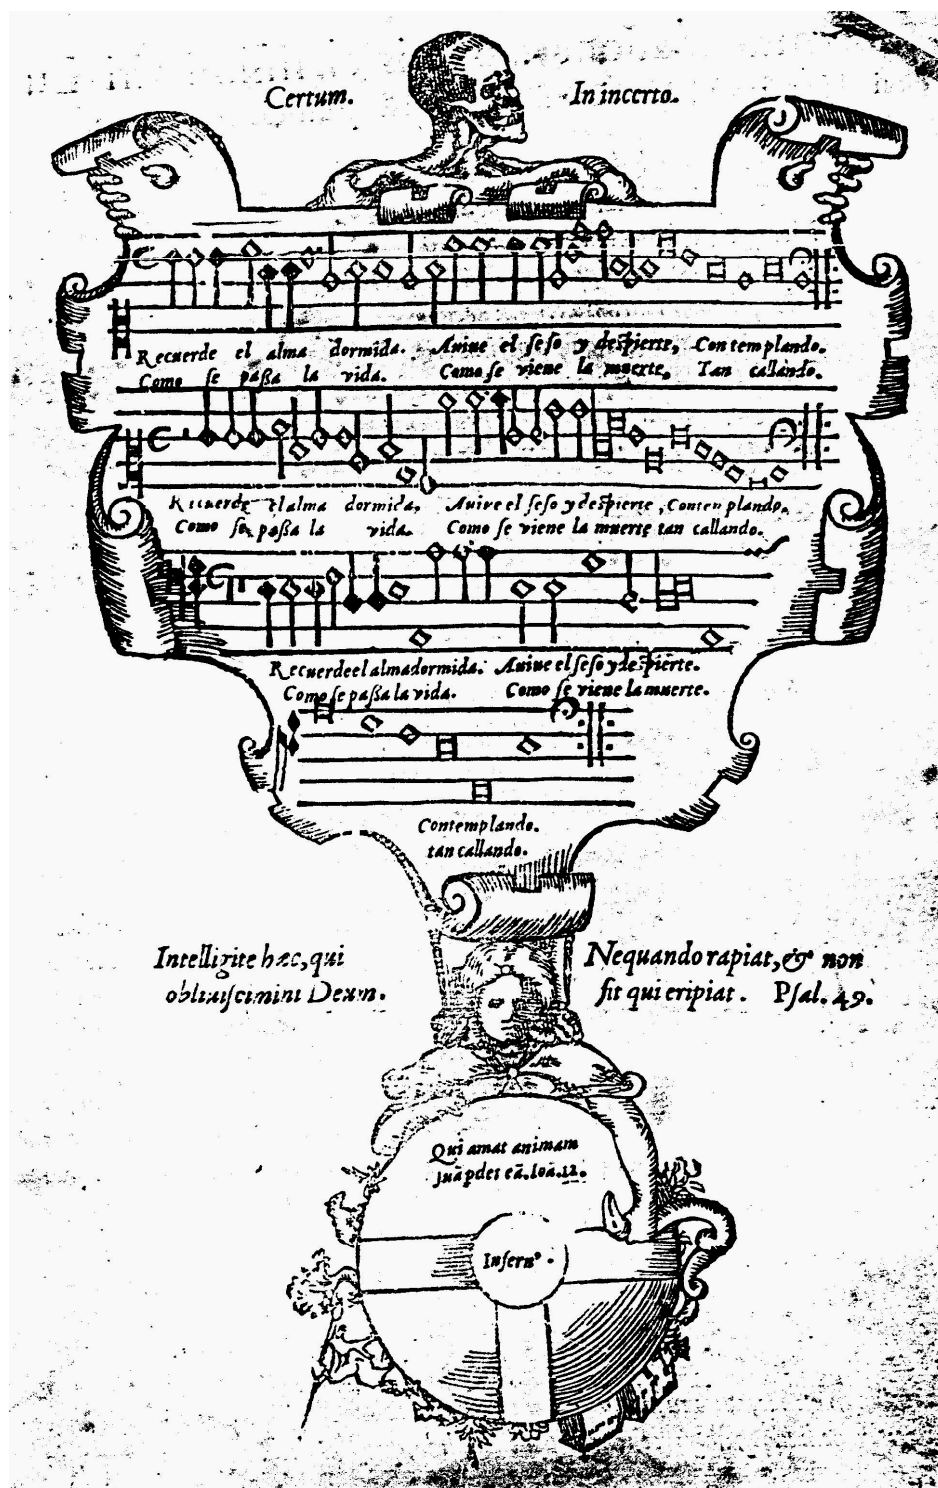 Certum. In incerto.
Recuerde el alma dormida. Auiue el seso y despierte, Contemplando.
Como se paßa la vida. Como se viene la muerte, Tan callando.
Recuerde el alma dormida, Auiue el seso y despierte, Contenplando.
Como se paßa la vida. Como se viene la muerte tan callando.
Recuerde el alma dormida. Auiue el seso y despierte.
Como se paßa la vida. Como se viene la muerte.
Contemplando.
tan callando.
Intelligite hæc, qui
obliuiscimini Deum.
Nequando rapiat, & non
sit qui eripiat. Psal. 49.
Qui amat animam
suā pdet eā. Ioā. 12.
Infernꝰ.